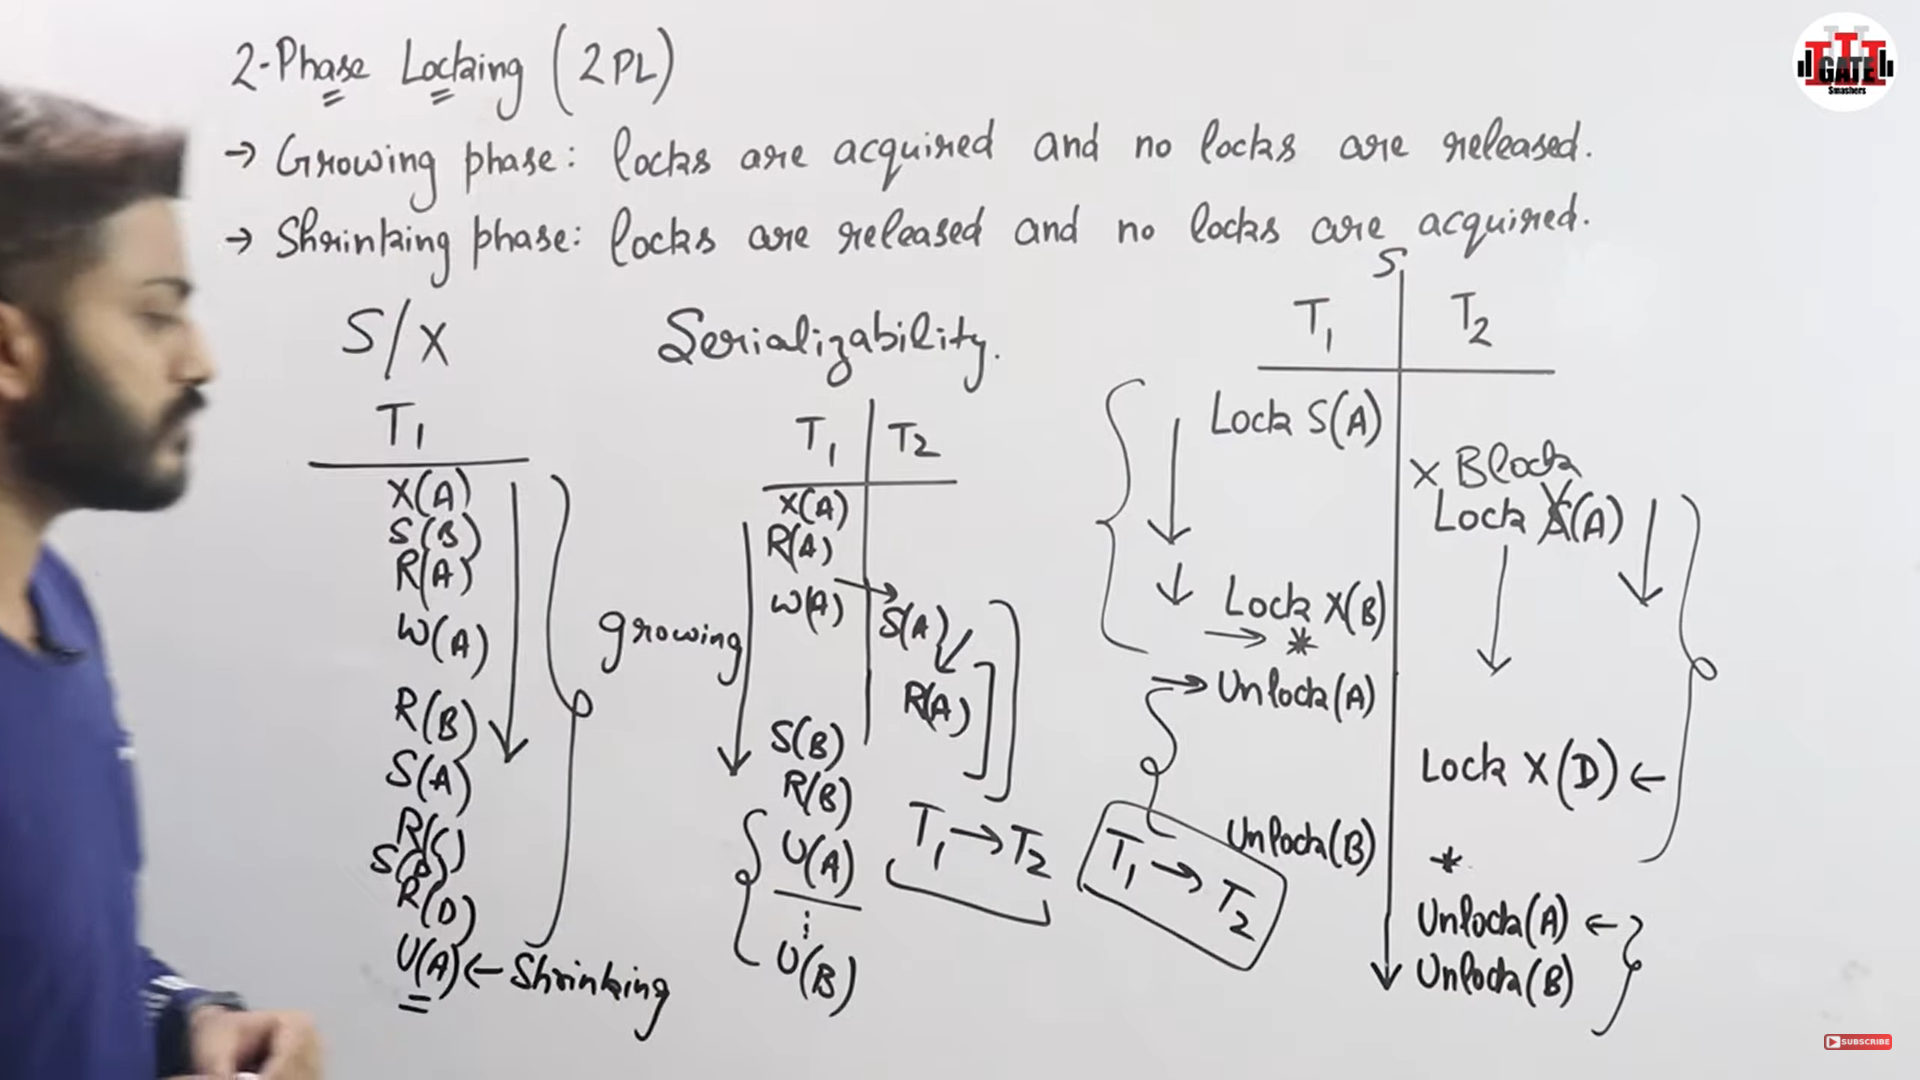 2-Phase Locking (2PL)
→ Growing phase: locks are acquired and no locks are released.
→ Shrinking phase: locks are released and no locks are acquired.
S/X
T1
X(A)
S(B)
R(A)
W(A)
R(B)
S(A)
R(C)
R(D)
U(A) ← Shrinking
growing
Serializability.
T1 T2
X(A)
R(A)
W(A)
S(A)
R(A)
S(B)
R(B)
U(A)
⋮
U(B)
T1 → T2
S
T1 T2
Lock S(A)
X Block
Lock X(A)
Lock X(B)
→ *
→ Unlock(A)
Lock X(D) ←
Unlock(B)
*
Unlock(A) ←
Unlock(B)
T1 → T2
GATE
Smashers
SUBSCRIBE